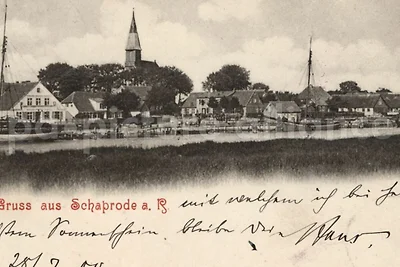 Gruss aus Schaprode a. R.
mit welchem ich bei
Sonnenschein, bleibe Dein Hans,
28/7.